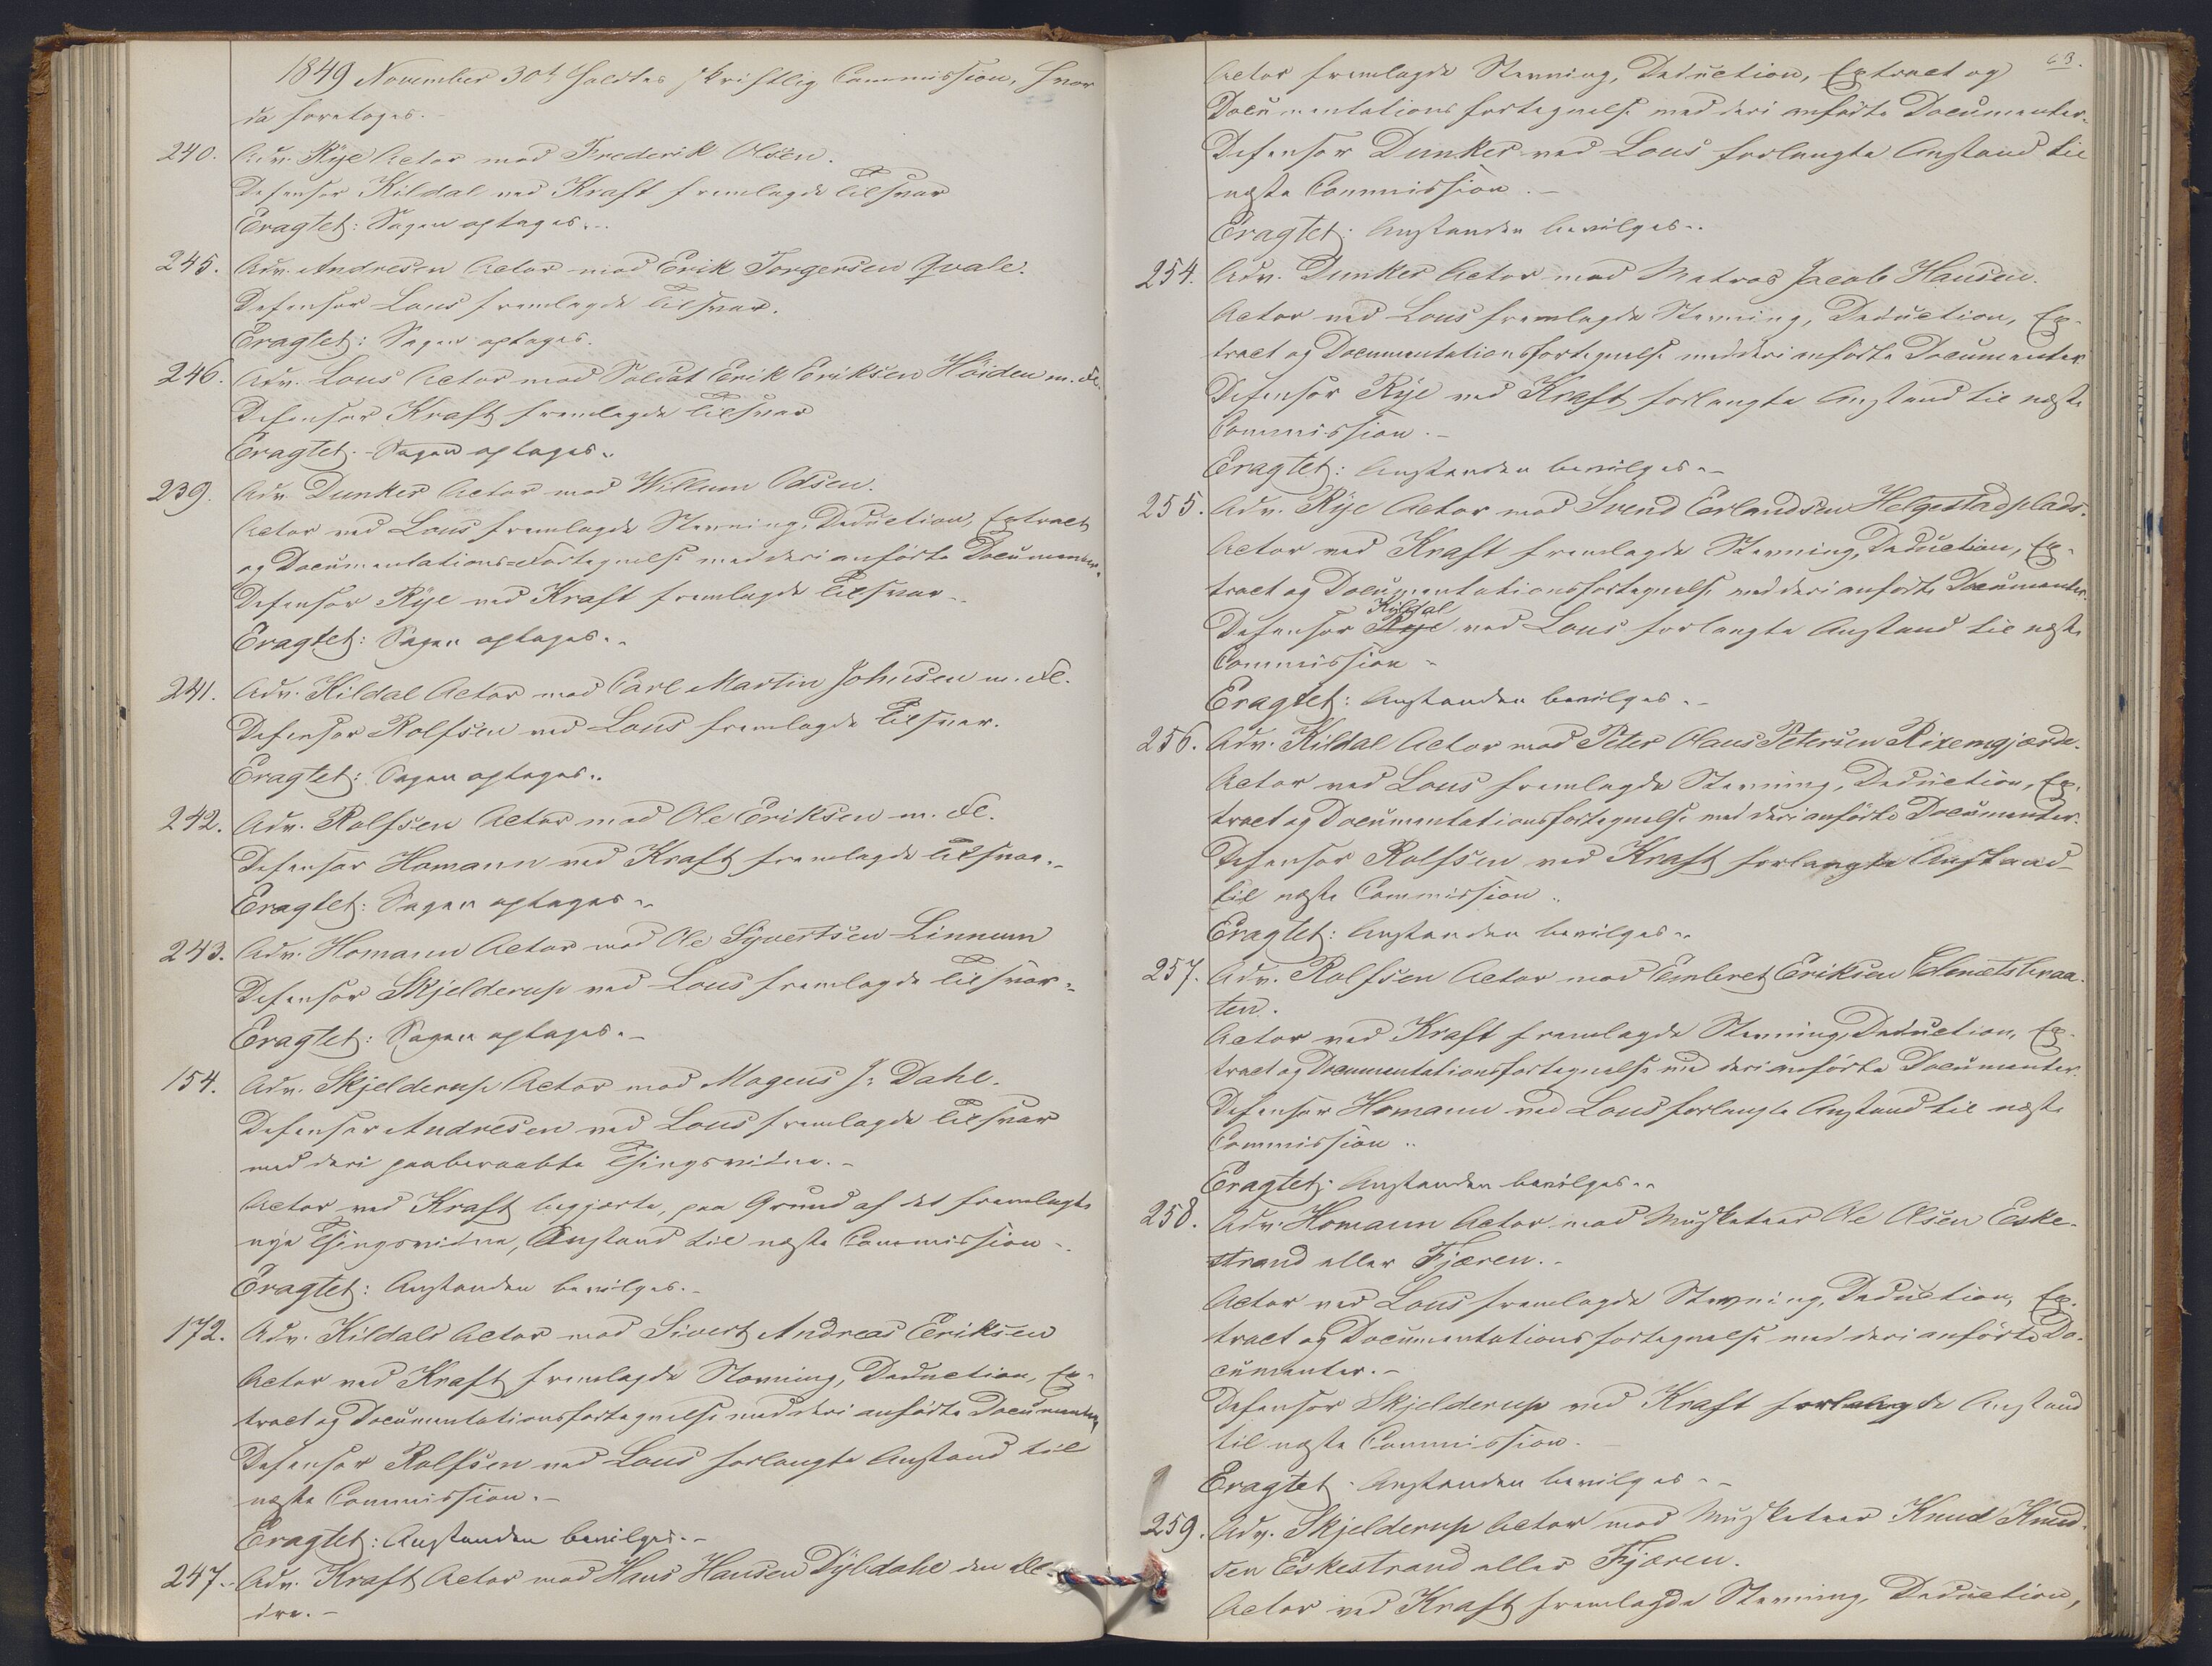 1849 November 30te holdtes skriftlig Commission, hvor
da foretoges.
240. Adv. Rye Actor mod Frederik Olsen.
Defensor Kildal ved Kraft fremlagde Tilsvar
Eragtet: Sagen optages.
245. Adv. Andresen Actor mod Erik Torgersen Qvale.
Defensor Lous fremlagde Tilsvar.
Eragtet: Sagen optages.
246. Adv. Lous Actor mod Soldat Erik Eriksen Höiden m. Fl.
Defensor Kraft fremlagde Tilsvar
Eragtet. Sagen optages.
239. Adv. Dunker Actor mod Willum Olsen.
Actor ved Lous fremlagde Stevning, Deduction, Extract
og Documentations-Fortegnelse med deri anförte Documenter.
Defensor Rye ved Kraft fremlagde Tilsvar.
Eragtet: Sagen optages.
241. Adv. Kildal Actor mod Carl Martin Johnsen m. Fl.
Defensor Rolfsen ved Lous fremlagde Tilsvar.
Eragtet: Sagen optages.
242. Adv. Rolfsen Actor mod Ole Eriksen m. Fl.
Defensor Homann ved Kraft fremlagde Tilsvar.
Eragtet: Sagen optages.
243. Adv. Homann Actor mod Ole Syvertsen Linnum
Defensor Skjelderup ved Lous fremlagde Tilsvar.
Eragtet: Sagen optages.
154. Adv. Skjelderup Actor mod Magnus J. Dahl.
Defensor Andresen ved Lous fremlagde Tilsvar
med deri paaberaabte Thingsvidne.
Actor ved Kraft begjærte, paa Grund af det fremlagte
nye Thingsvidne, Anstand til næste Commission.
Eragtet: Anstanden bevilges.
172. Adv. Kildals Actor mod Sivert Andreas Eriksen
Actor ved Kraft fremlagde Stevning, Deduction, Ex-
tract og Documentationsfortegnelse med deri anförte Documenter
Defensor Rolfsen ved Lous forlangte Anstand til
næste Commission.
Eragtet: Anstanden bevilges.
247. Adv. Kraft Actor mod Hans Hansen Dybdahl den Æl-
dre.
63.
Actor fremlagde Stevning, Deduction, Extract og
Documentationsfortegnelse med deri anförte Documenter.
Defensor Dunker ved Lous forlangte Anstand til
næste Commission.
Eragtet: Anstanden bevilges.
254. Adv. Dunker Actor mod Matros Jacob Hansen.
Actor ved Lous fremlagde Stevning, Deduction, Ex-
tract og Documentationsfortegnelse med deri anförte Documenter
Defensor Rye ved Kraft forlangte Anstand til næste
Commission.
Eragtet: Anstanden bevilges.
255. Adv. Rye Actor mod Svend Erlandsen Helgestadplads.
Actor ved Kraft fremlagde Stevning, Deduction, Ex-
tract og Documentationsfortegnelse med deri anförte Documenter.
Kildal
Defensor Rye ved Lous forlangte Anstand til næste
Commission
Eragtet: Anstanden bevilges.
256. Adv. Kildal Actor mod Peter Olaus Petersen Rixemgjærde.
Actor ved Lous fremlagde Stevning, Deduction, Ex-
tract og Documentationsfortegnelse med deri anförte Documenter.
Defensor Rolfsen ved Kraft forlangte Anstand
til næste Commission.
Eragtet: Anstanden bevilges.
257. Adv. Rolfsen Actor mod Embret Eriksen Ednætsbraa-
ten.
Actor ved Kraft fremlagde Stevning, Deduction, Ex-
tract og Documentationsfortegnelse med deri anförte Documenter.
Defensor Homann ved Lous forlangte Anstand til næste
Commission.
Eragtet: Anstanden bevilges.
258. Adv. Homann Actor mod Musketeer Ole Olsen Eske-
strand eller Fjæren.
Actor ved Lous fremlagde Stevning, Deduction, Ex-
tract og Documentationsfortegnelse med deri anförte Do-
cumenter.
Defensor Skjelderup ved Kraft forlangde Anstand
til næste Commission.
Eragtet. Anstanden bevilges.
259. Adv. Skjelderup Actor mod Musketeer Knud Knud-
sen Eskestrand eller Fjæren.
Actor ved Kraft fremlagde Stevning, Deduction,